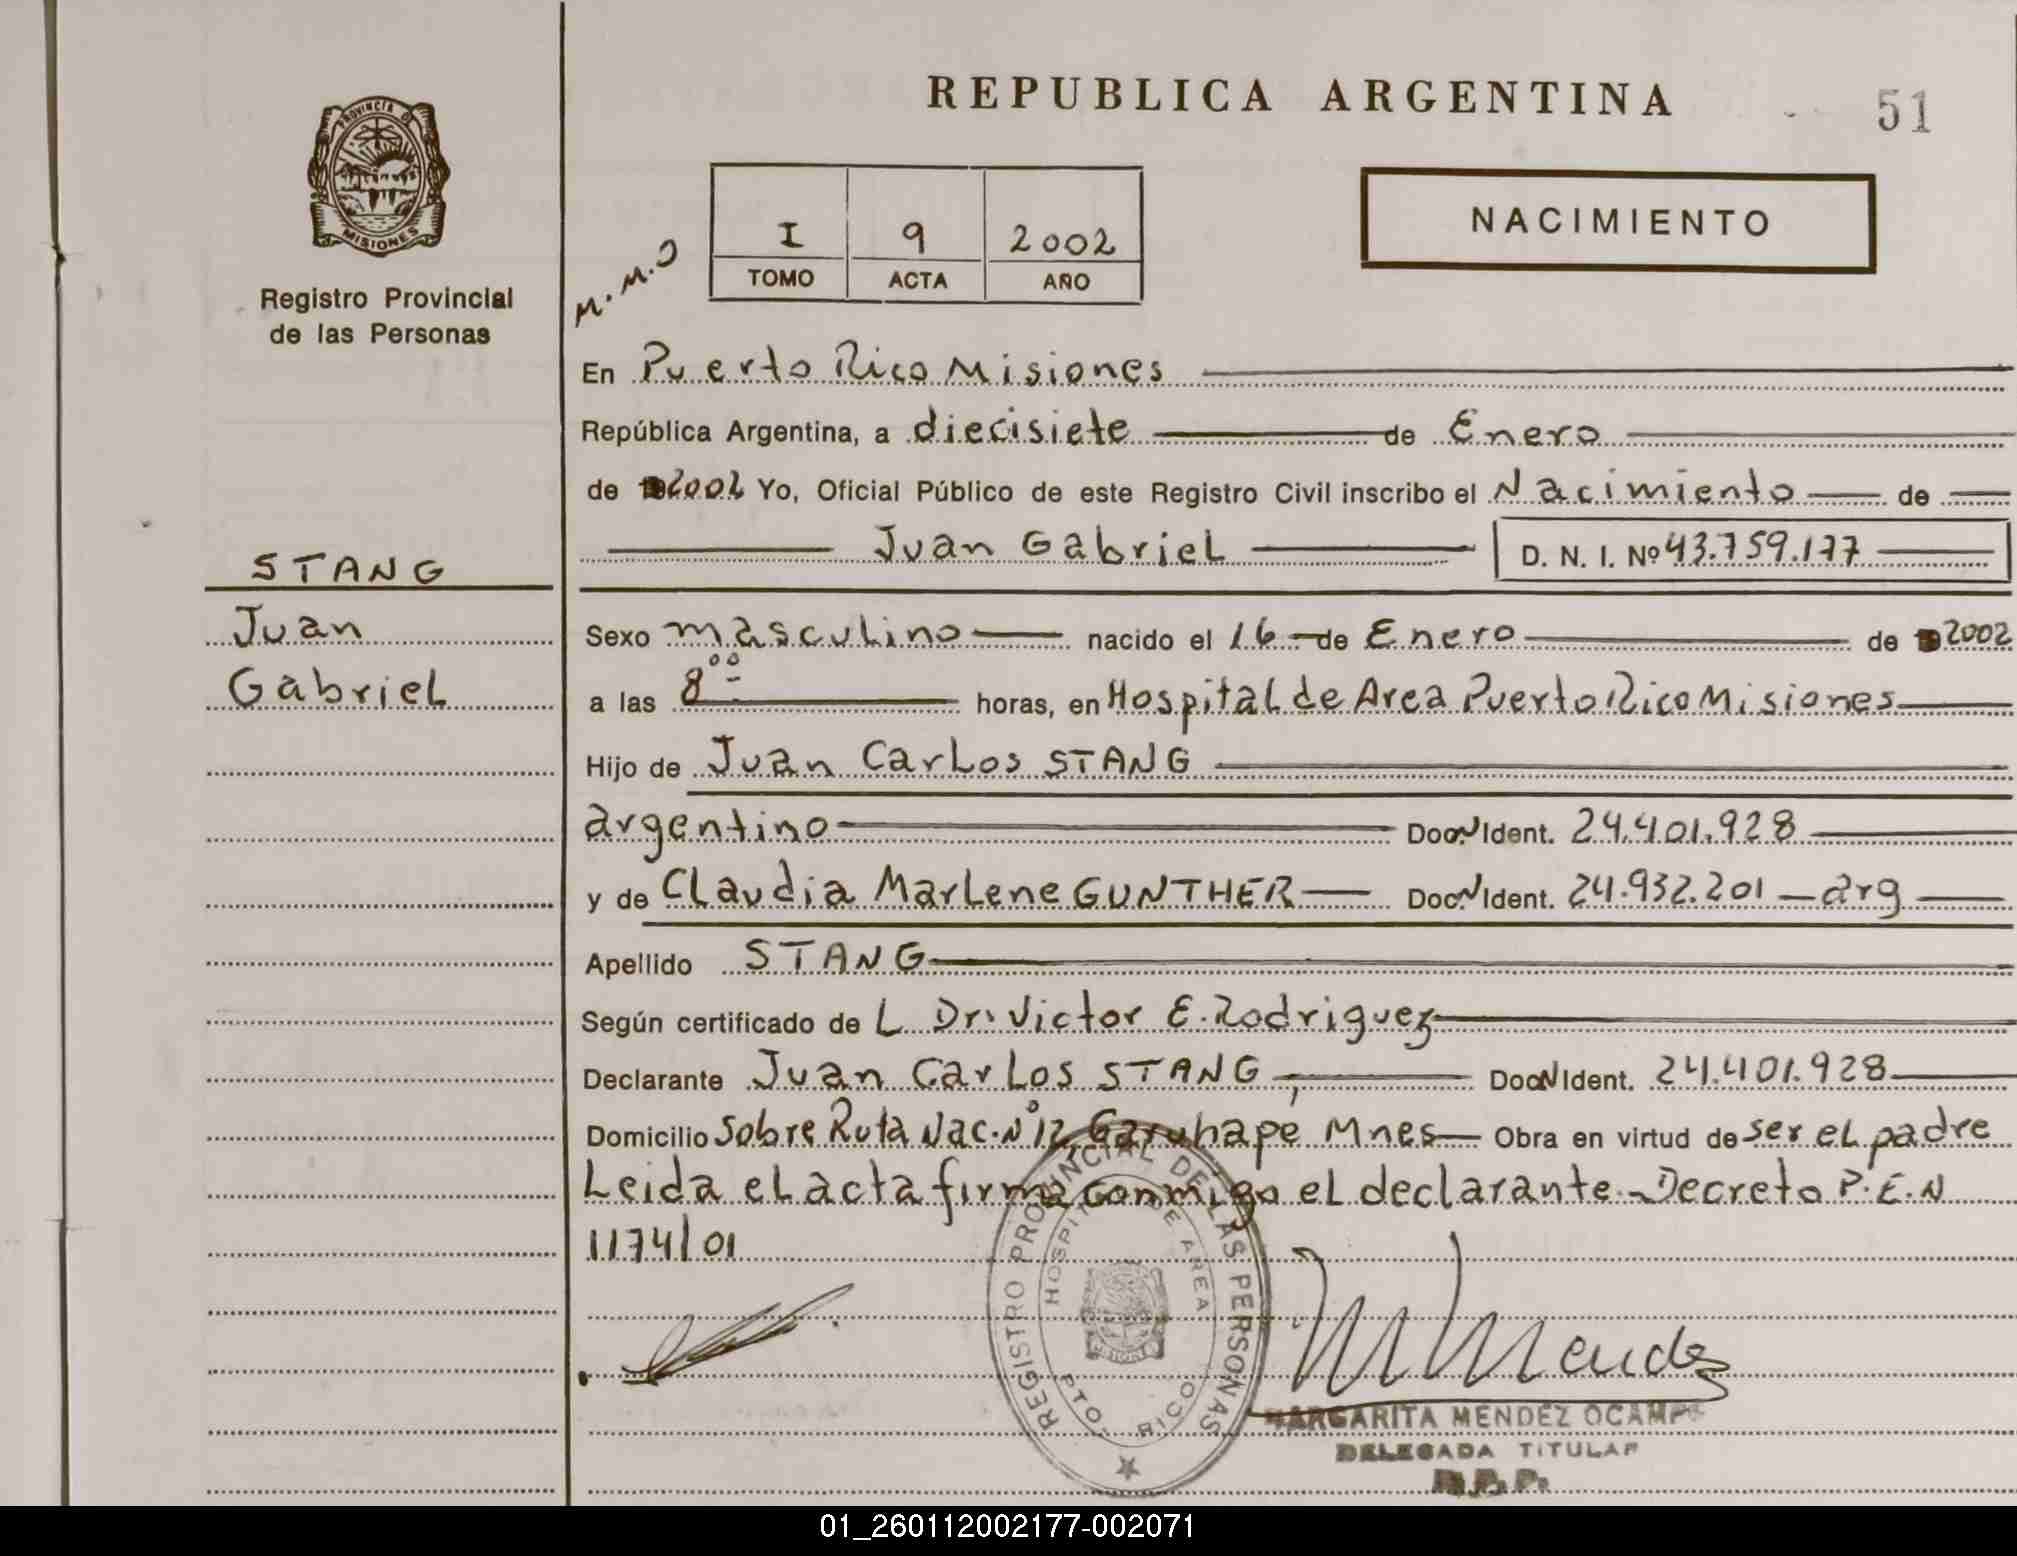 REPUBLICA ARGENTINA
51
PROVINCIA DE
MISIONES
Registro Provincial
de las Personas
M.M.O
I 9 2002
TOMO ACTA AÑO
NACIMIENTO
En Puerto Rico Misiones
República Argentina, a diecisiete de Enero
de 2002 Yo, Oficial Público de este Registro Civil inscribo el Nacimiento de
Juan Gabriel D. N. I. Nº 43.759.177
STANG
Juan
Gabriel
Sexo masculino nacido el 16 de Enero de 2002
a las 8⁰⁰ horas, en Hospital de Area Puerto Rico Misiones
Hijo de Juan Carlos STANG
argentino Doc. N Ident. 24.401.928
y de Claudia Marlene GUNTHER Doc. N Ident. 24.932.201 - arg
Apellido STANG
Según certificado de L Dr. Victor E. Rodriguez
Declarante Juan Carlos STANG, Doc N Ident. 24.401.928
Domicilio Sobre Ruta Nac. Nº 12 Garuhapé Mnes Obra en virtud de ser el padre
Leida el acta firma conmigo el declarante - Decreto P.E.N
1174/01
REGISTRO PROVINCIAL DE LAS PERSONAS
HOSPITAL DE AREA
PTO. RICO
MISIONES
M Mendez
MARGARITA MENDEZ OCAMPO
DELEGADA TITULAR
01_260112002177-002071